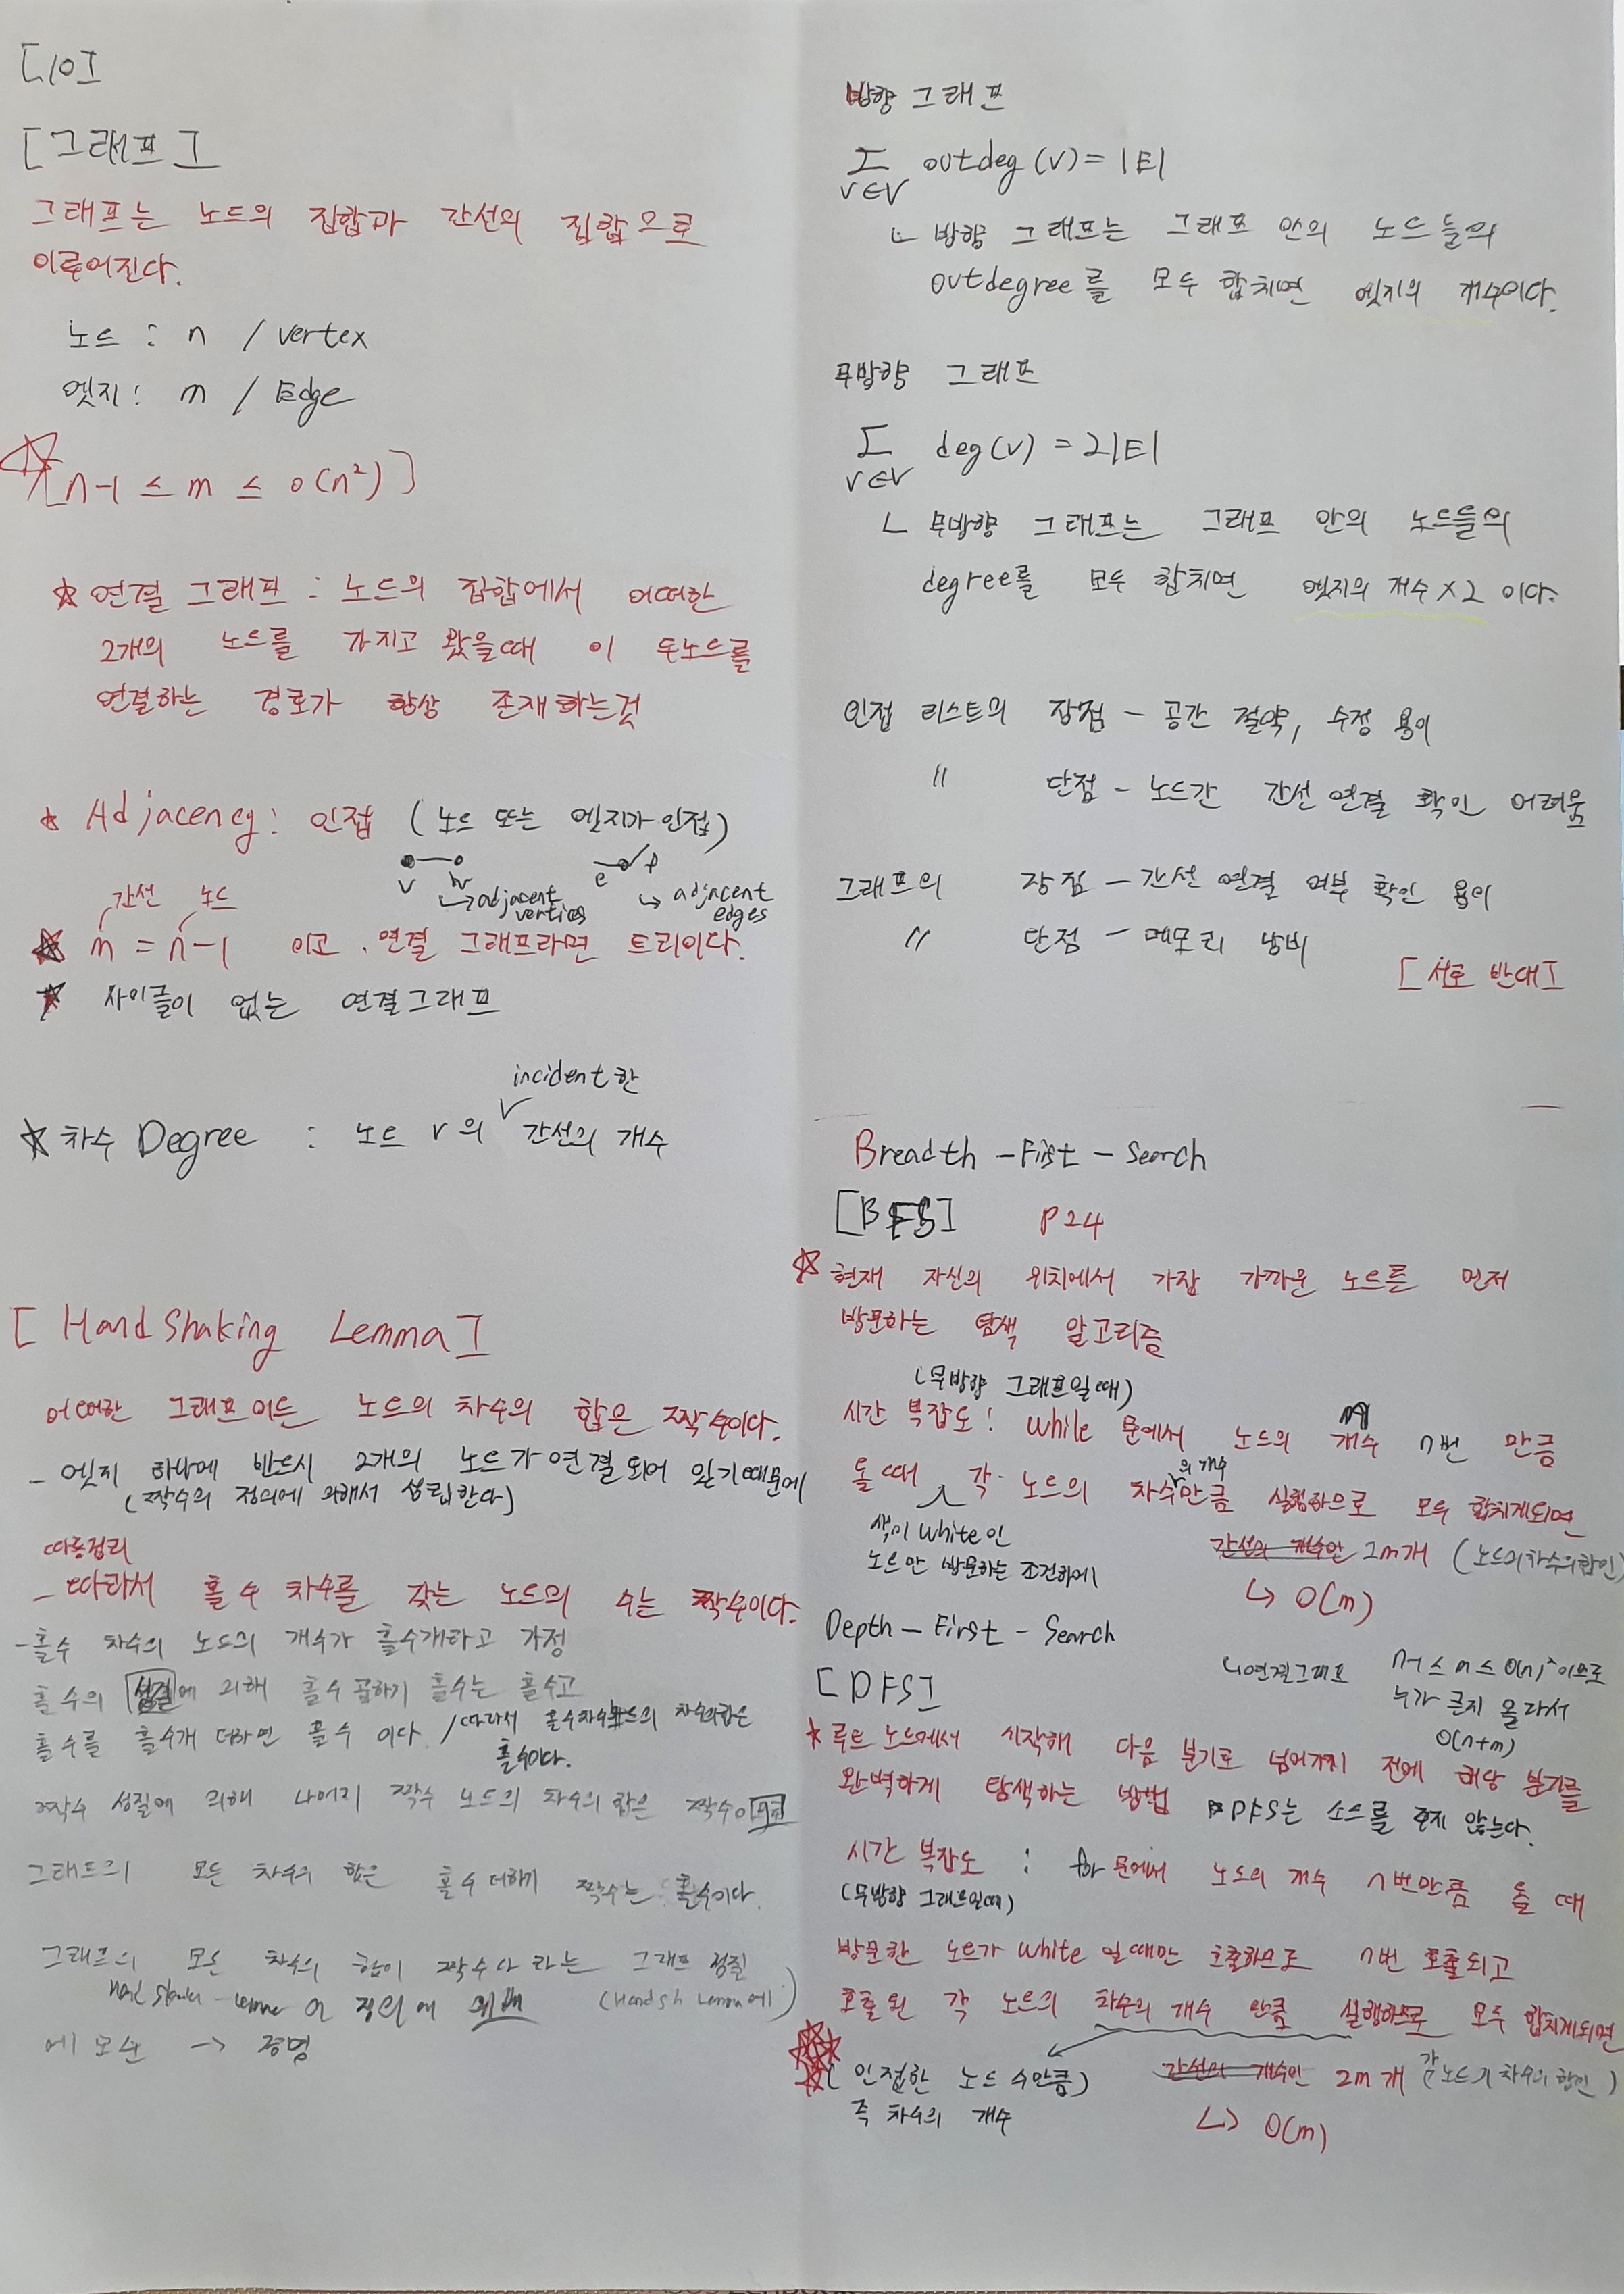 [10]
[그래프]
그래프는 노드의 집합과 간선의 집합으로
이루어진다.
노드 : n / vertex
엣지 : m / Edge
[n-1 ≤ m ≤ o(n²)]
☆ 연결 그래프 : 노드의 집합에서 어떠한
2개의 노드를 가지고 왔을때 이 두노드를
연결하는 경로가 항상 존재하는것
★ Adjacency : 인접 (노드 또는 엣지가 인접)
v w e f
↳ adjacent vertices ↳ adjacent edges
간선 노드
★ m = n-1 이고, 연결 그래프라면 트리이다.
★ 사이클이 없는 연결그래프
incident한
★ 차수 Degree : 노드 v의 ∨ 간선의 개수
[Hand Shaking Lemma]
어떠한 그래프이든 노드의 차수의 합은 짝수이다.
- 엣지 하나에 반드시 2개의 노드가 연결되어 있기때문에
(짝수의 정의에 의해서 성립한다)
따름정리
- 따라서 홀수 차수를 갖는 노드의 수는 짝수이다.
- 홀수 차수의 노드의 개수가 홀수개라고 가정
홀수의 성질에 의해 홀수 곱하기 홀수는 홀수고
홀수를 홀수개 더하면 홀수 이다 / 따라서 홀수차수노드의 차수의합은
홀수이다.
짝수 성질에 의해 나머지 짝수 노드의 차수의 합은 짝수이고
그래프의 모든 차수의 합은 홀수 더하기 짝수는 홀수이다.
그래프의 모든 차수의 합이 짝수다 라는 그래프 성질
의 정의에 위배 (Handsh Lemma에)
에 모순 → 증명
방향 그래프
Σ outdeg(v) = |E|
v∈V
↳ 방향 그래프는 그래프 안의 노드들의
outdegree를 모두 합치면 엣지의 개수이다.
무방향 그래프
Σ deg(v) = 2|E|
v∈V
↳ 무방향 그래프는 그래프 안의 노드들의
degree를 모두 합치면 엣지의 개수 X 2 이다.
인접 리스트의 장점 - 공간 절약, 수정 용이
〃 단점 - 노드간 간선 연결 확인 어려움
그래프의 장점 - 간선 연결 여부 확인 용이
〃 단점 - 메모리 낭비
[서로 반대]
Breadth - First - Search
[BFS] P24
☆ 현재 자신의 위치에서 가장 가까운 노드를 먼저
방문하는 탐색 알고리즘
(무방향 그래프일때)
시간 복잡도 : while 문에서 노드의 개수 n번 만큼
의 개수
돌 때 각 노드의 차수만큼 실행하므로 모두 합치게되면
색이 white인
노드만 방문하는 조건하에
간선의 개수인 2m개 (노드의차수의합인)
↳ O(m)
Depth - First - Search
[DFS]
↳연결그래프 n-1 ≤ m ≤ O(n)² 이므로
누가 큰지 몰라서
O(n+m)
★ 루트 노드에서 시작해 다음 분기로 넘어가기 전에 해당 분기를
완벽하게 탐색하는 방법 DFS는 소스를 주지 않는다.
시간 복잡도 : for 문에서 노드의 개수 n번만큼 돌 때
(무방향 그래프일때)
방문한 노드가 white 일때만 호출하므로 n번 호출되고
호출된 각 노드의 차수의 개수 만큼 실행하므로 모두 합치게되면
(인접한 노드 수만큼)
즉 차수의 개수
간선의 개수인 2m개 (각 노드의 차수의 합인)
↳ O(m)